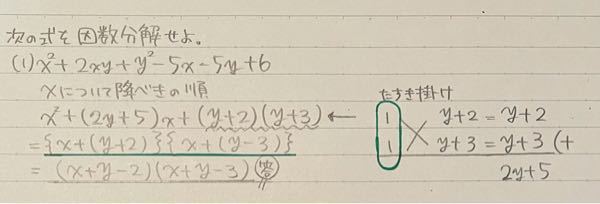 次の式を因数分解せよ。
(1) x²+2xy+y²-5x-5y+6
xについて降べきの順
x²+(2y+5)x+(y+2)(y+3) ←
={x+(y+2)}{x+(y-3)}
=(x+y-2)(x+y-3) 答
たすき掛け
1 y+2=y+2
1 y+3=y+3 (+
2y+5